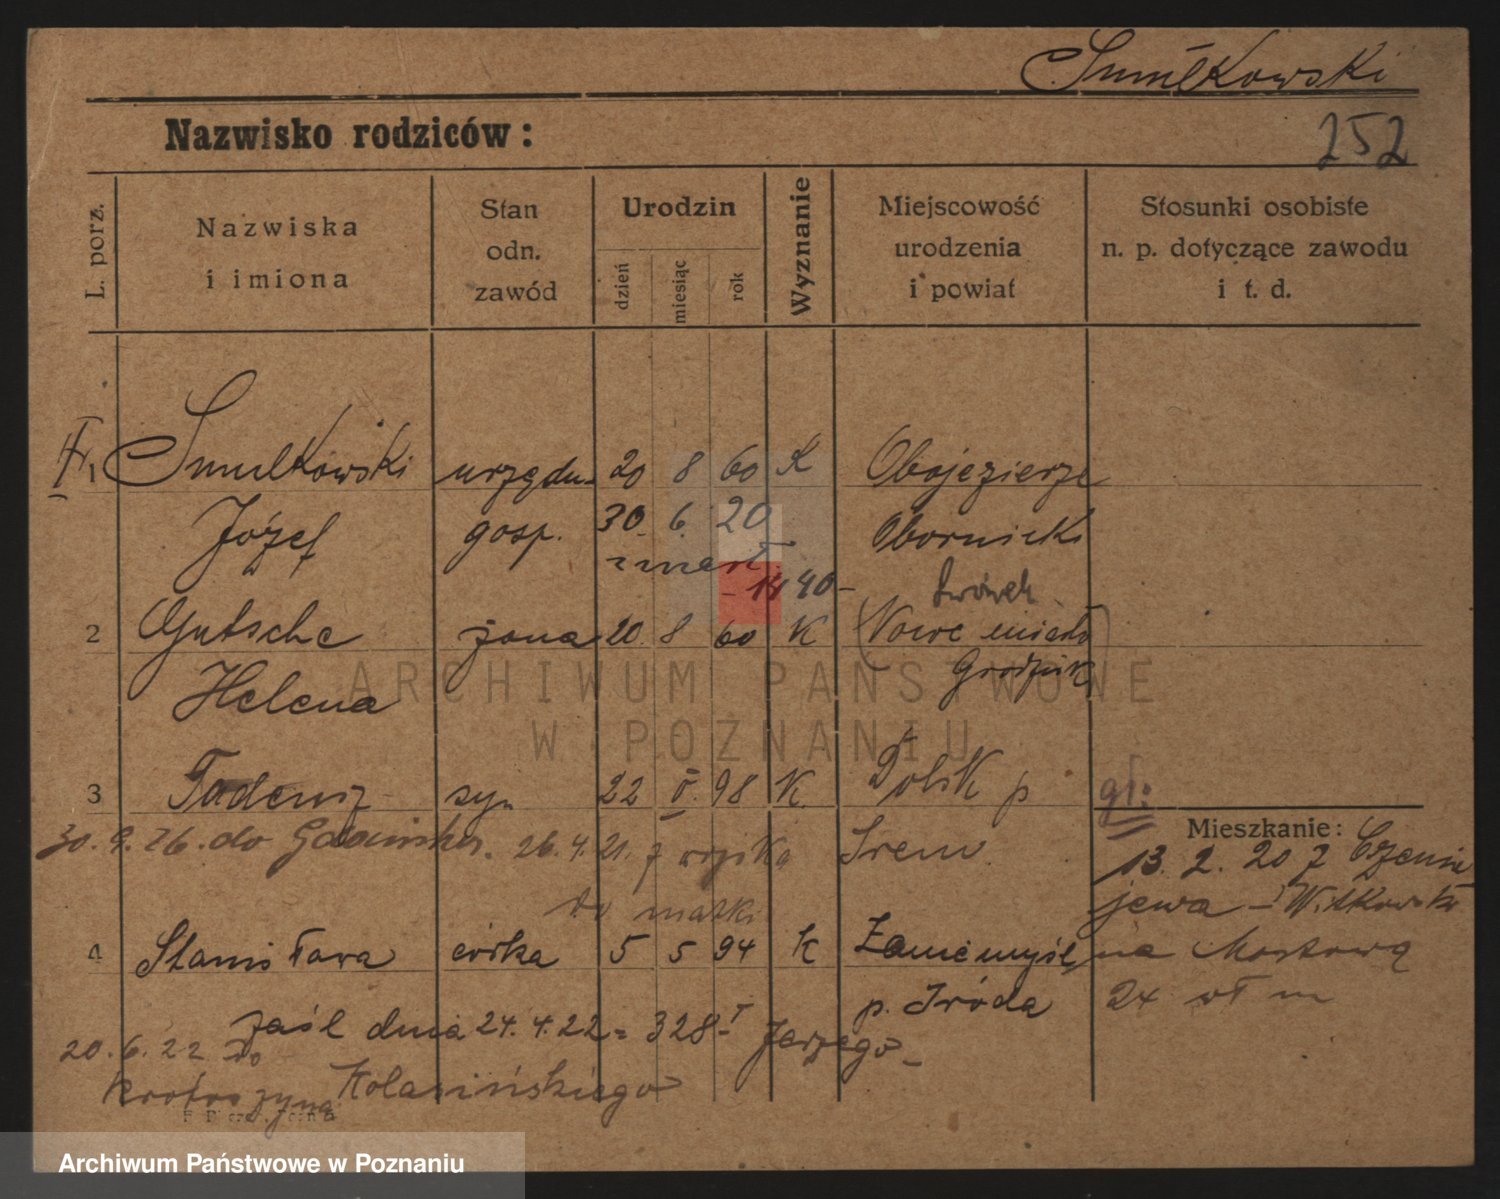 Smułkowski
252
Nazwisko rodziców:
L. porz.
Nazwiska
i imiona
Stan
odn.
zawód
Urodzin
dzień
miesiąc
rok
Wyznanie
Miejscowość
urodzenia
i powiat
Stosunki osobiste
n. p. dotyczące zawodu
i t. d.
1 Smułkowski urzędn. 20 8 60 K Objezierze
Józef gosp. 30. 6. 20 Obornicki
zmarł
- 14 40 - Lwówek
2 Gutsche żona 20. 8 60 K (Nowe miasto)
Helena Grodzisk
ARCHIWUM PAŃSTWOWE
W POZNANIU
3 Tadeusz syn 22 V. 98 K. Dolsk p
gł:
30. 9. 26. do Gdańska. 26. 4. 21. z wojska Śrem.
do matki
Mieszkanie:
13. 2. 20 z Czernie
jewa - Witkowski
na Mostową
24 wł m
4 Stanisława córka 5 5 94 K Zaniemyśl
p. Środa
zaśl dnia 24. 4. 22 = 328 Jerzego -
20. 6. 22 do
Krotoszyna Kolasińskiego
Archiwum Państwowe w Poznaniu